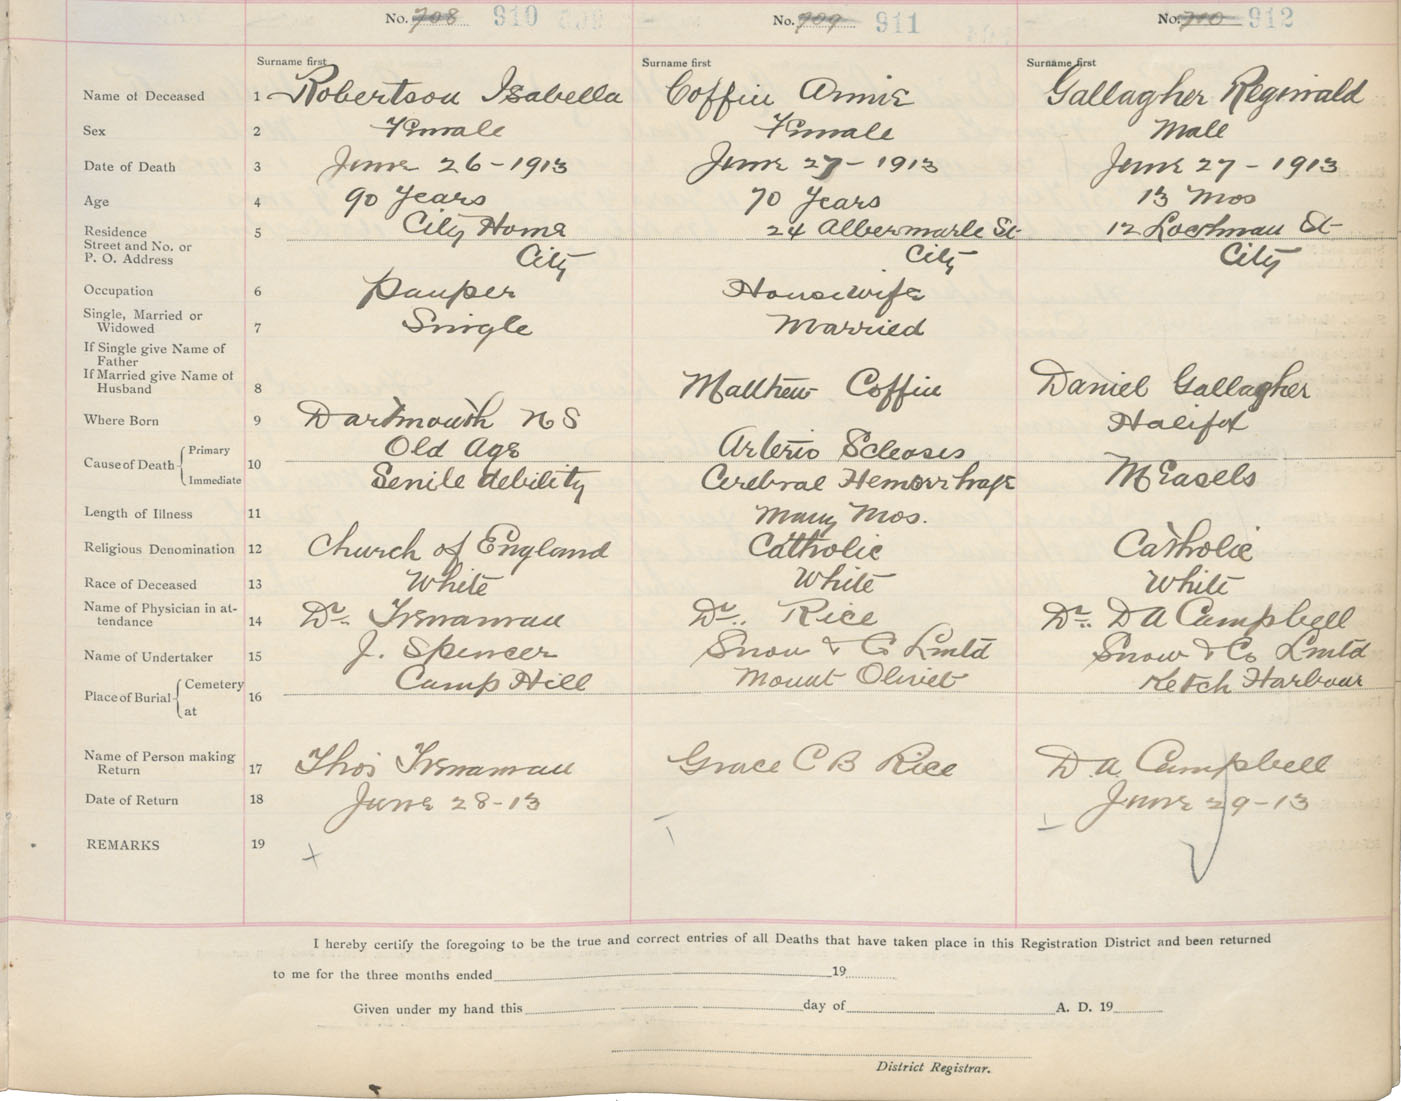 No. 708 910
No. 709 911
No. 710 912
Surname first Surname first Surname first
Name of Deceased 1 Robertson Isabella Coffin Annie Gallagher Reginald
Sex 2 Female Female Male
Date of Death 3 June 26-1913 June 27-1913 June 27-1913
Age 4 90 Years 70 Years 13 Mos
Residence 5 City Home 24 Albermarle St 12 Lochman St
Street and No. or
P. O. Address City City City
Occupation 6 Pauper Housewife
Single, Married or
Widowed 7 Single Married
If Single give Name of
Father
If Married give Name of
Husband 8 Matthew Coffin Daniel Gallagher
Where Born 9 Dartmouth NS Halifax
Cause of Death Primary 10 Old Age Arterio Scleosis
Immediate Senile debility Cerebral Hemorrhage Measels
Length of Illness 11 Many Mos.
Religious Denomination 12 Church of England Catholic Catholic
Race of Deceased 13 White White White
Name of Physician in at-
tendance 14 Dr. Trenaman Dr. Rice Dr. D A Campbell
Name of Undertaker 15 J. Spencer Snow & Co Lmtd Snow & Co Lmtd
Place of Burial Cemetery 16 Camp Hill Mount Olivet Ketch Harbour
at
Name of Person making
Return 17 Thos Trenaman Grace C B Rice D. A. Campbell
Date of Return 18 June 28-13 June 29-13
REMARKS 19
I hereby certify the foregoing to be the true and correct entries of all Deaths that have taken place in this Registration District and been returned
to me for the three months ended 19
Given under my hand this day of A. D. 19
District Registrar.